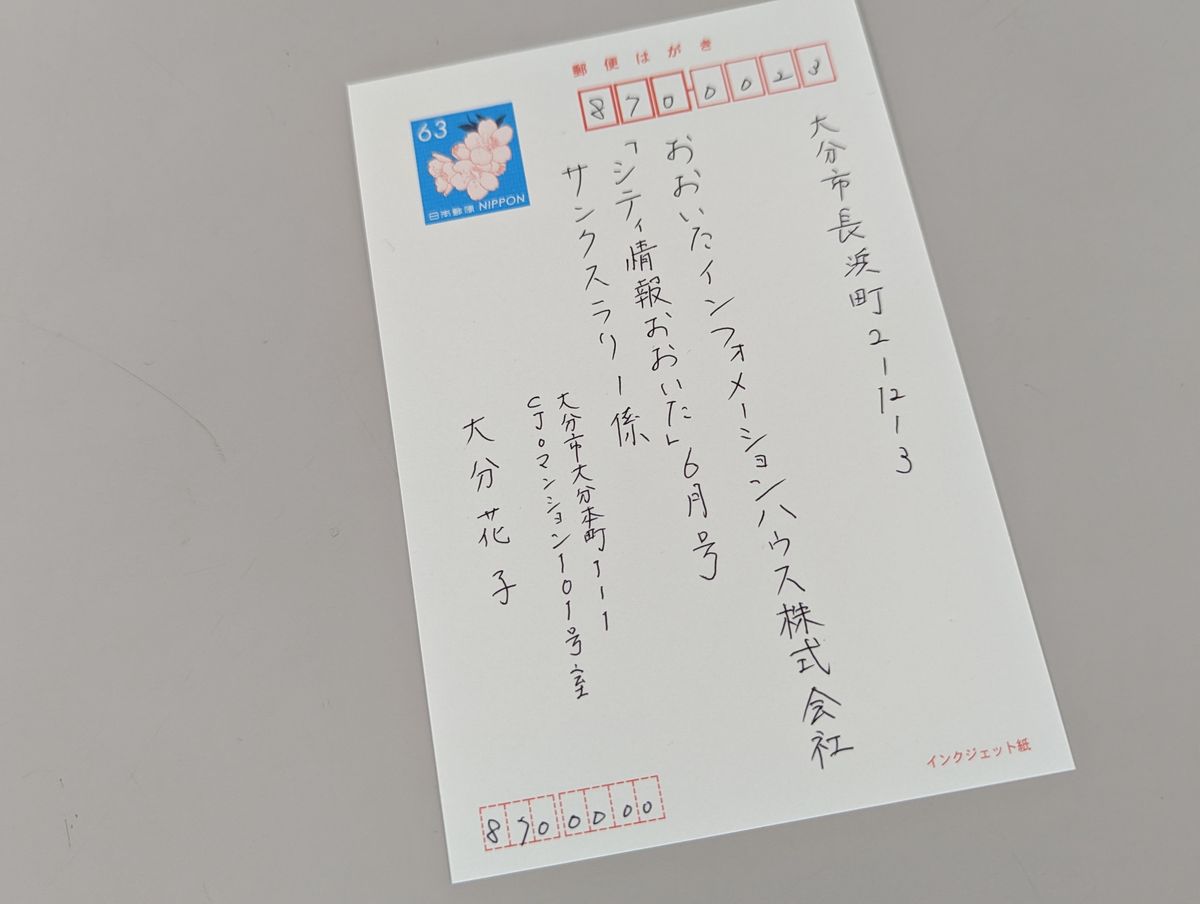 郵便はがき
8700023
63
日本郵便 NIPPON
大分市長浜町2-12-3
おおいたインフォメーションハウス株式会社
「シティ情報おおいた」6月号
サンクスラリー係
大分市大分本町1-1-1
CJ。マンション101号室
大分花子
8700000
インクジェット紙